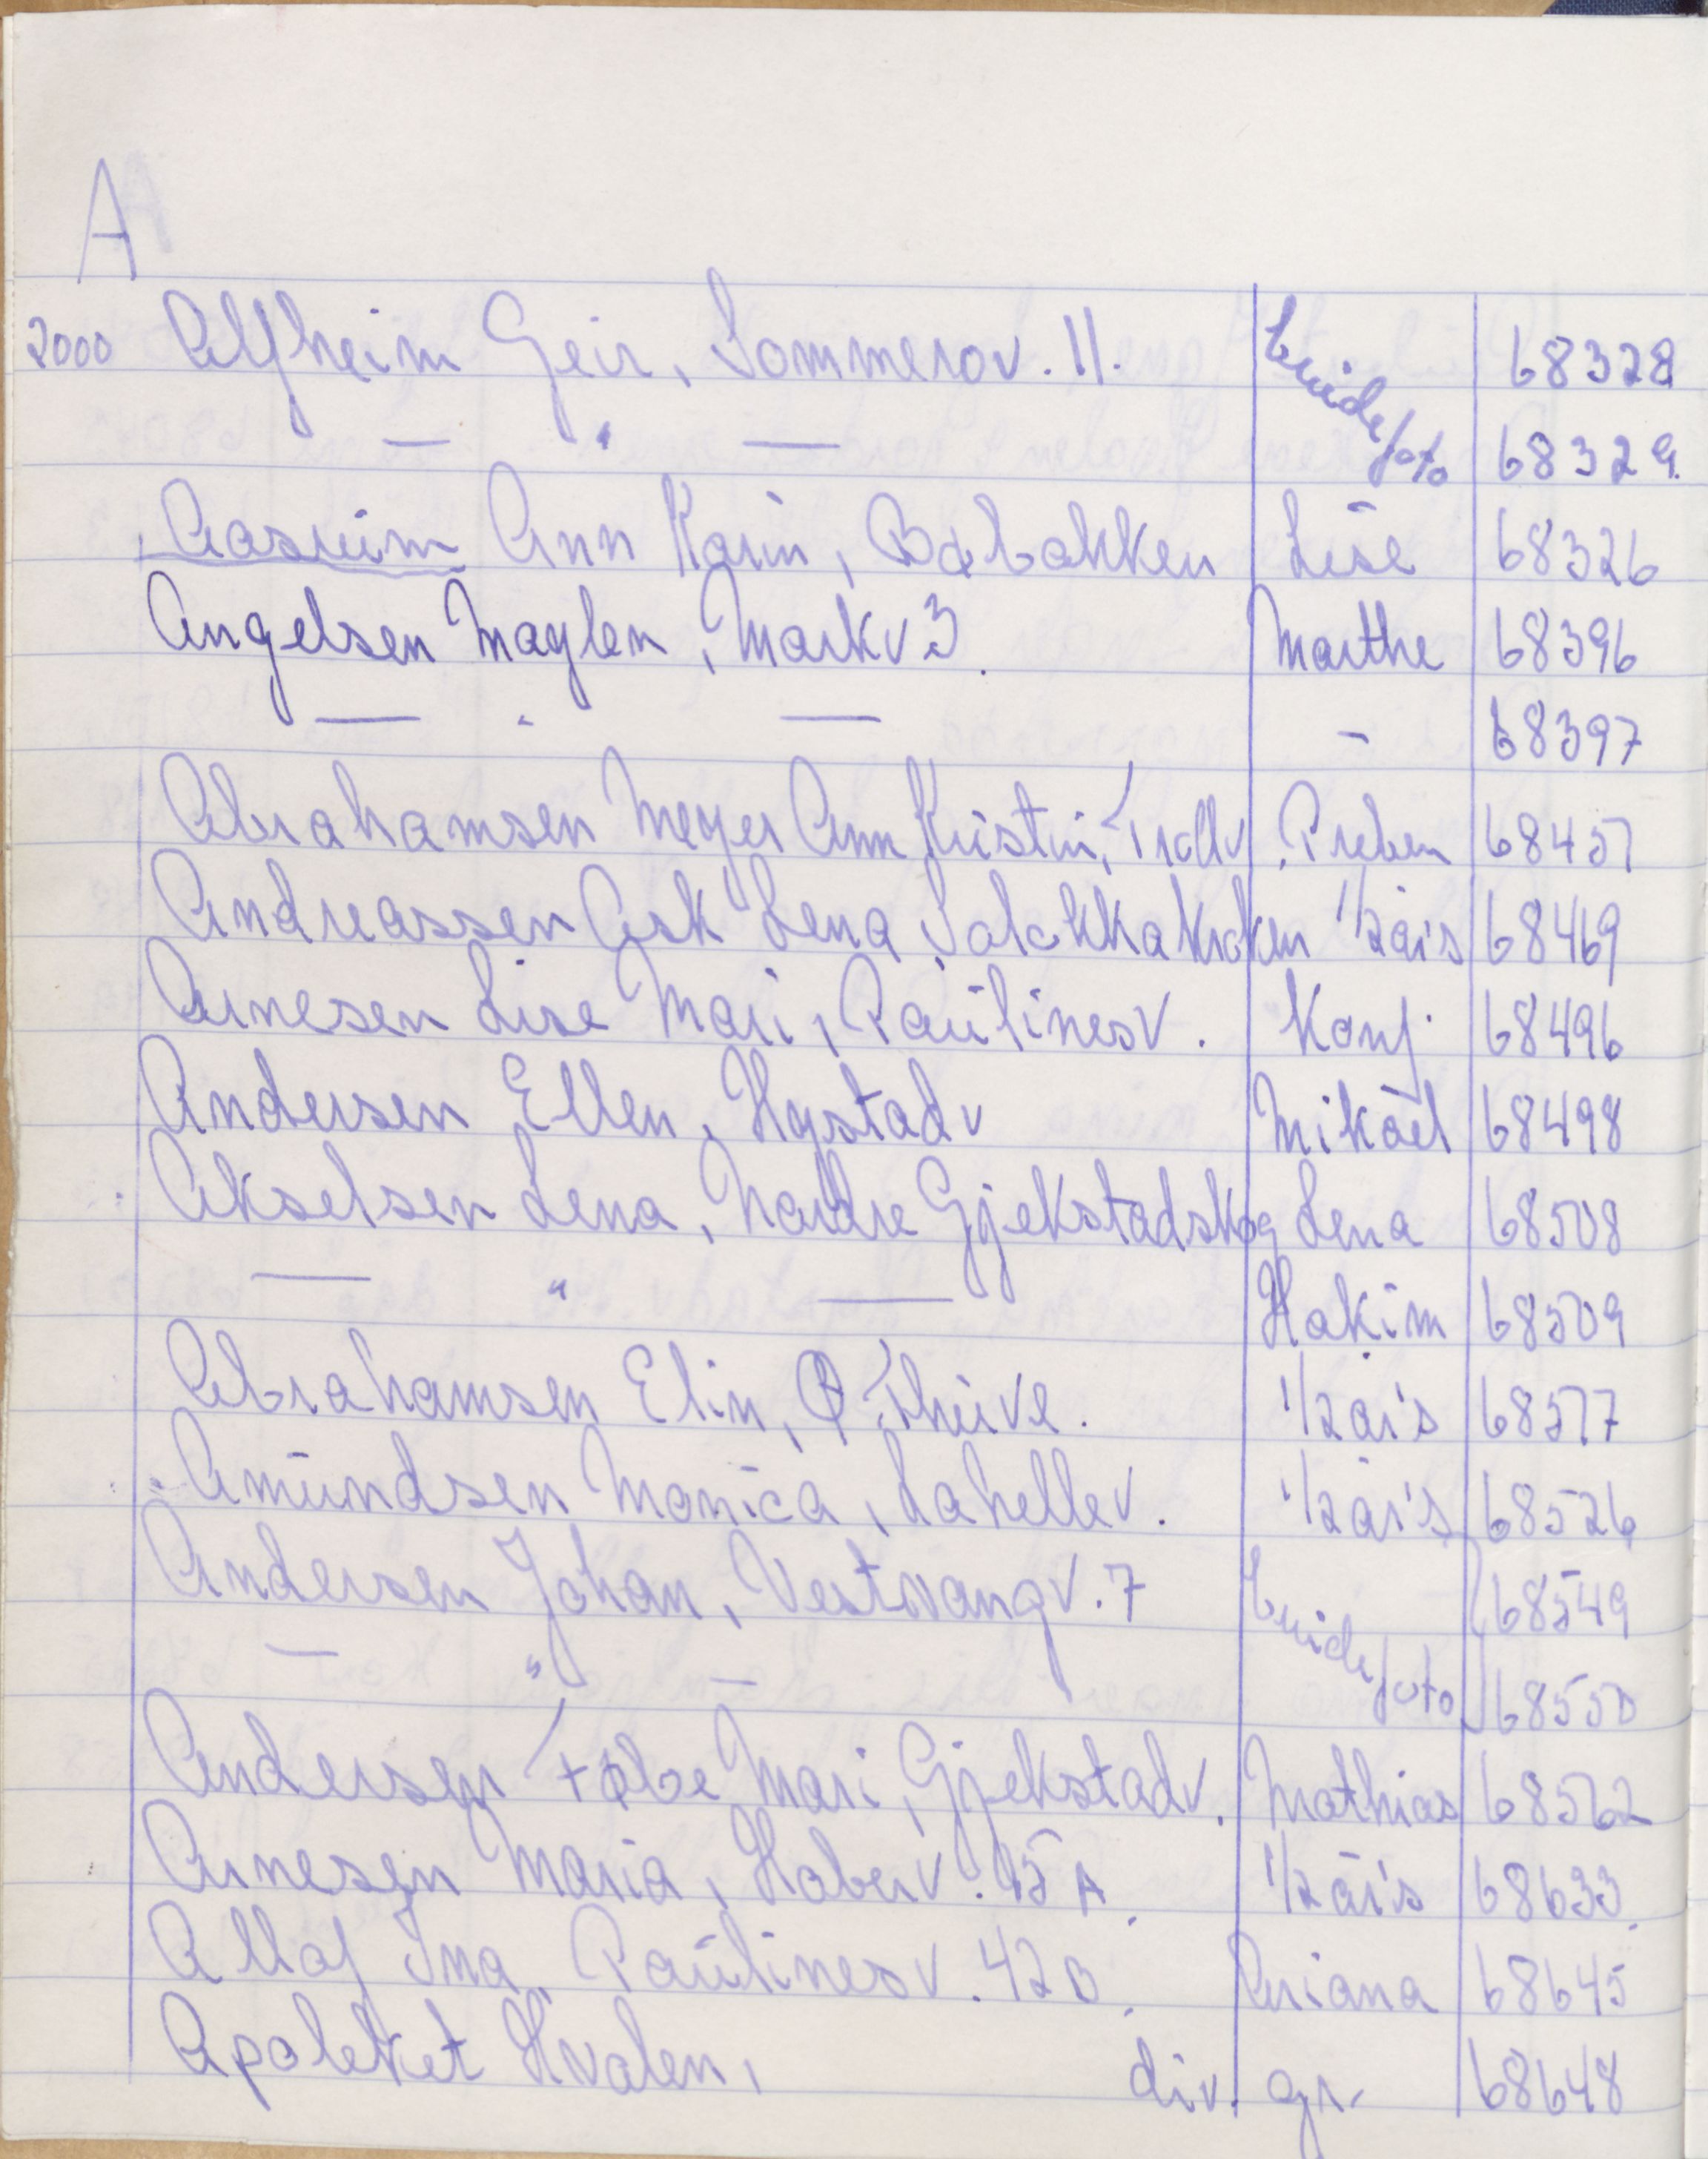 A
2000 Alfheim Geir, Sommerov. 11. bruidefoto 68328
— " — 68329.
Aasheim Ann Karin, Bøbakken Lise 68326
Angelsen Maylen, Markv 3. Marthe 68396
— " — - 68397
Abrahamsen Meyer Ann Kristin, Trollv. Preben 68457
Andreassen Ask Lena 1/2 års 68469
Arnesen Lise Mari, Paulinesv. Konf. 68496
Andersen Ellen, Hystadv Mikael 68498
Akselsen Lena, Nordre Gjekstadskog Lena 68508
— " — Hakim 68509
Abrahamsen Elin, Ø. Thuive. 1/2 års 68577
Amundsen Monica, Lahellev. 1/2 års 68526
Andersen Johan, Vestvangv. 7 bruidefoto 68549
— " — 68550
Andersen Tobe Mari, Gjekstadv. Mathias 68562
Arnesen Maria, Haberv. 45 A. 1/2 års 68633.
Allaj Ina, Paulinesv. 42 D. Ariana 68645
Apoteket Hvalen, div. gr. 68648